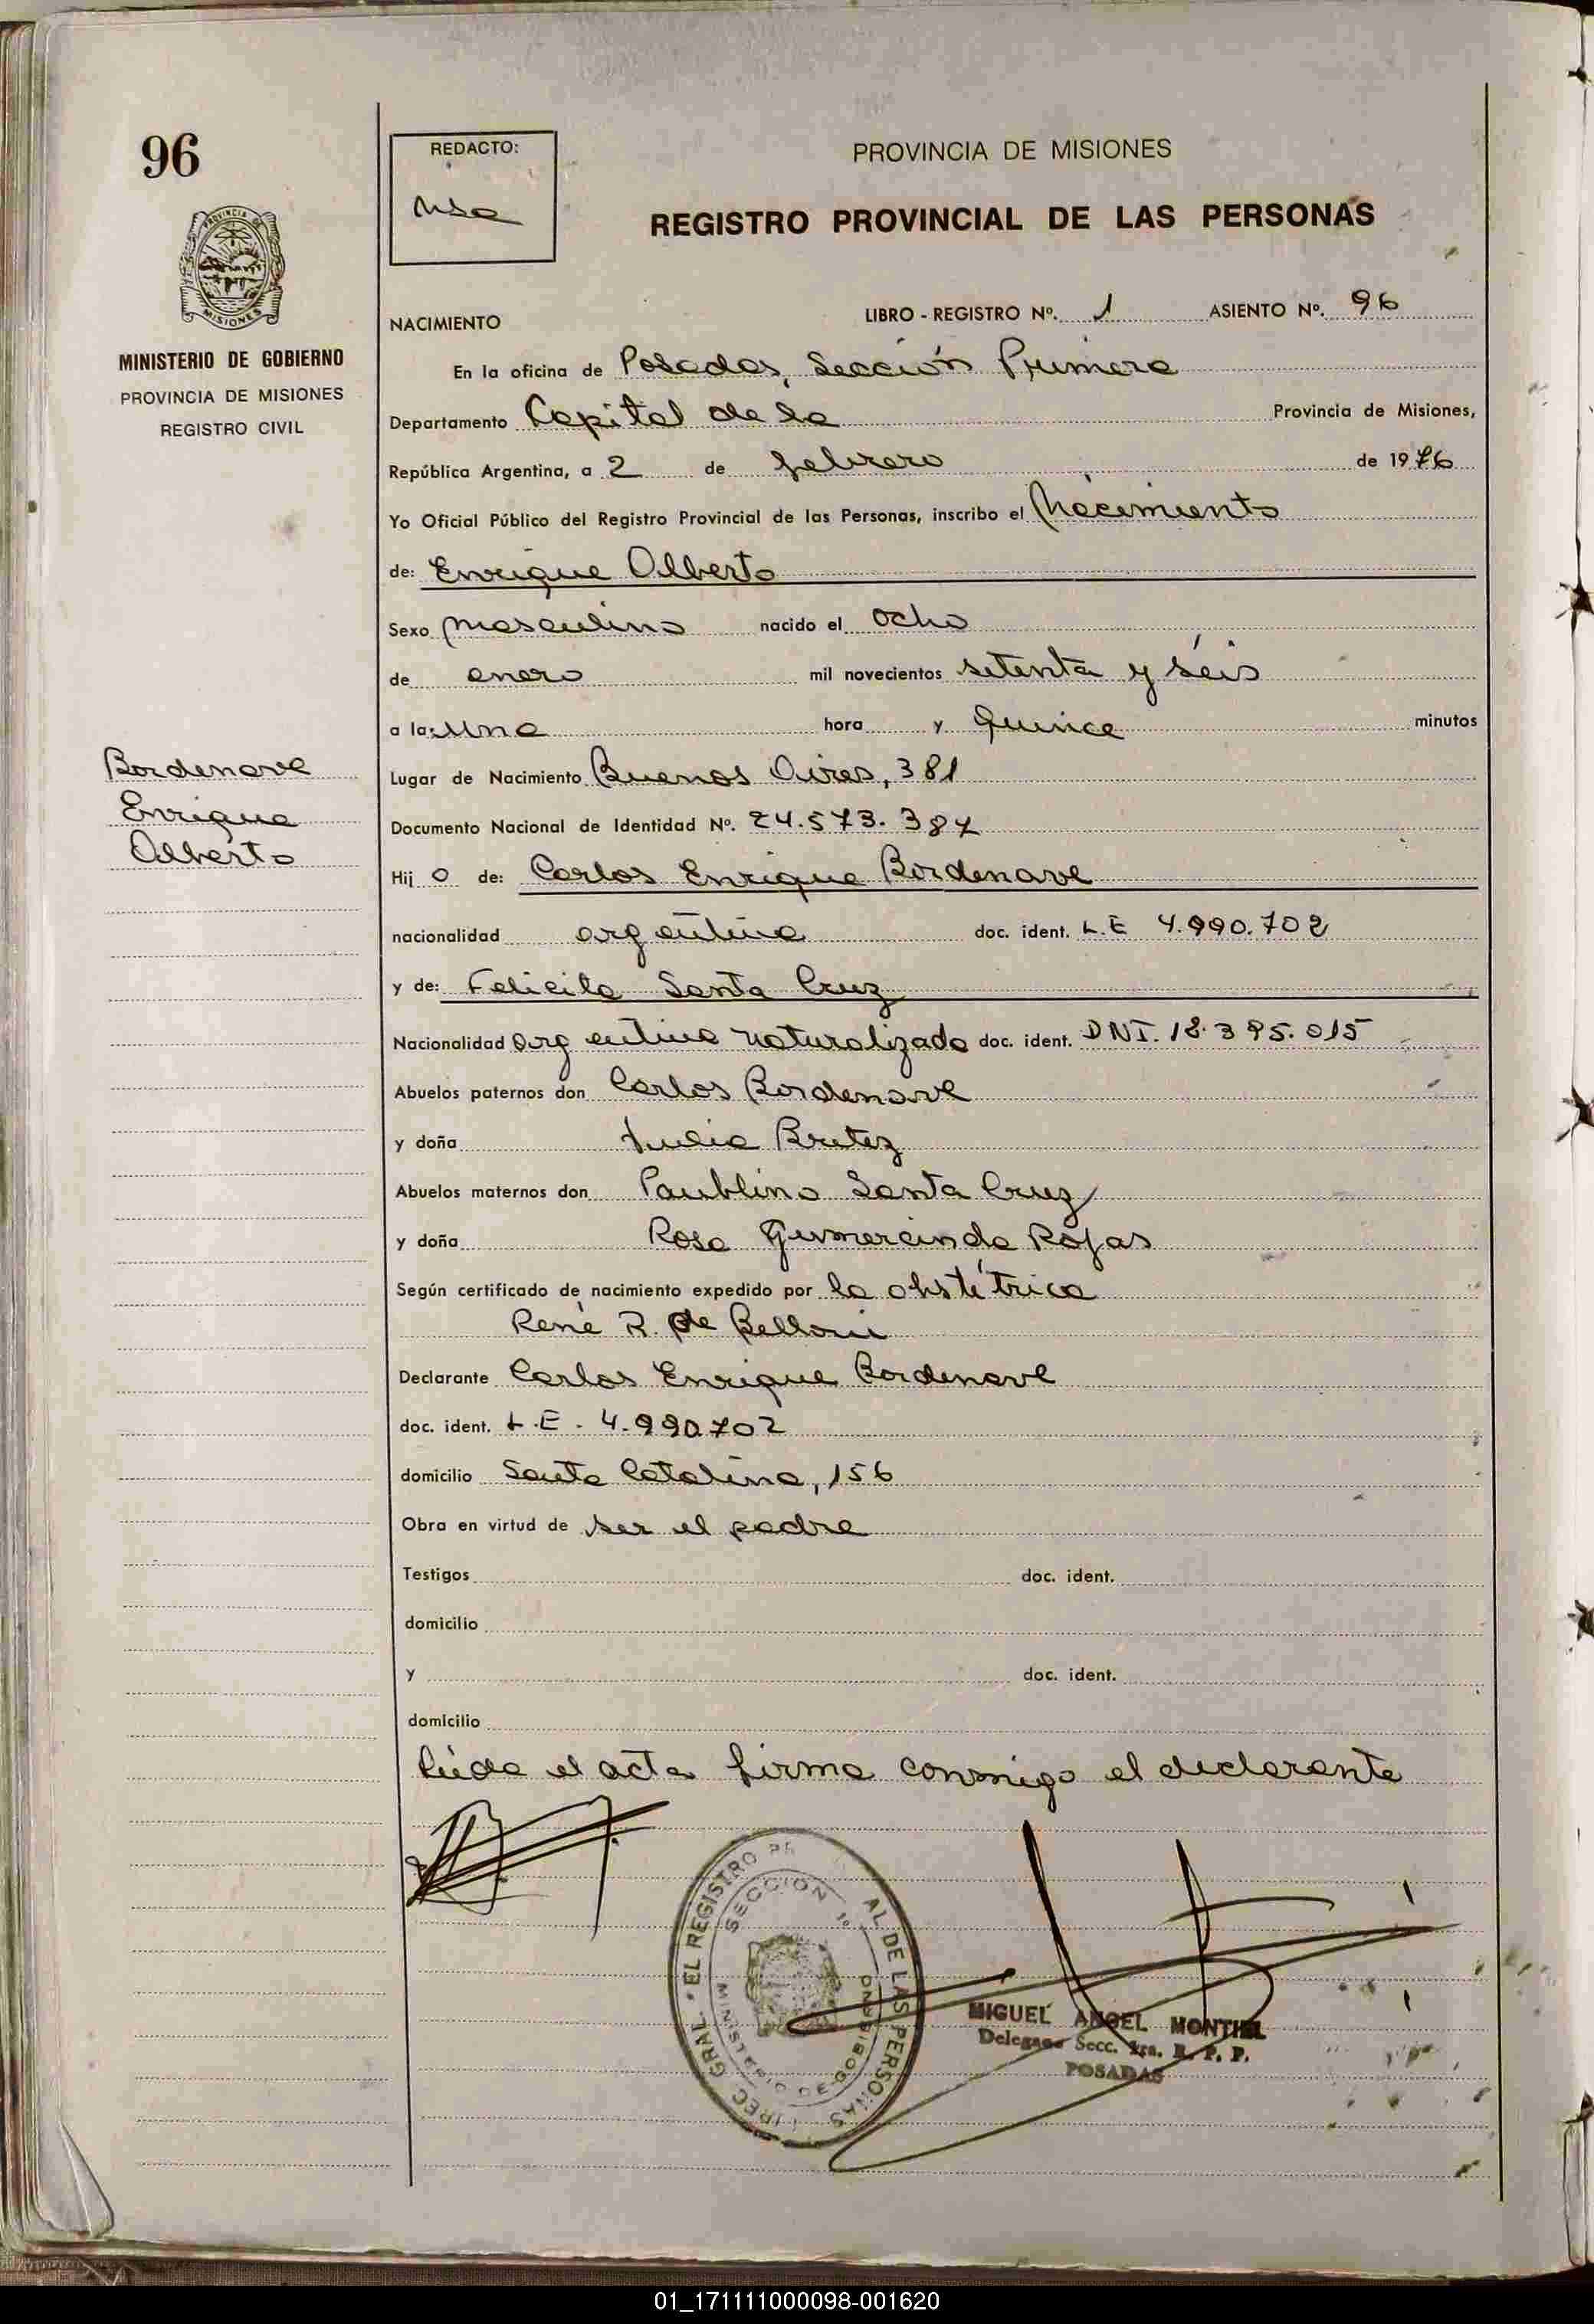 96
REDACTO:
PROVINCIA DE MISIONES
REGISTRO PROVINCIAL DE LAS PERSONAS
PROVINCIA DE
MISIONES
MINISTERIO DE GOBIERNO
PROVINCIA DE MISIONES
REGISTRO CIVIL
NACIMIENTO LIBRO - REGISTRO Nº. 1 ASIENTO Nº. 96
En la oficina de Posadas, Sección Primera
Departamento Capital de la Provincia de Misiones,
República Argentina, a 2 de febrero de 1976
Yo Oficial Público del Registro Provincial de las Personas, inscribo el Nacimiento
de: Enrique Alberto
Sexo masculino nacido el ocho
de enero mil novecientos setenta y seis
a la una hora y quince minutos
Lugar de Nacimiento Buenos Aires, 381
Documento Nacional de Identidad Nº. 24.573.387
Hij o de: Carlos Enrique Bordenave
nacionalidad argentina doc. ident. L.E 4.990.702
y de: Felicita Santa Cruz
Nacionalidad argentina naturalizada doc. ident. DNI. 18.395.015
Abuelos paternos don Carlos Bordenave
y doña Julia Britez
Abuelos maternos don Paublino Santa Cruz
y doña Rosa Gumercinda Rojas
Según certificado de nacimiento expedido por la obstétrica
René R. de Belloni
Declarante Carlos Enrique Bordenave
doc. ident. L.E. 4.990.702
domicilio Santa Catalina, 156
Obra en virtud de ser el padre
Testigos doc. ident.
domicilio
y doc. ident.
domicilio
Leída el acta firma conmigo el declarante
Bordenave
Enrique
Alberto
DIREC. GRAL. EL REGISTRO AL DE LAS PERSONAS
SECCION 1º
MINISTERIO DE GOBIERNO
MIGUEL ANGEL MONTIEL
Delegado Secc. 1ra. R. P. P.
POSADAS
01_171111000098-001620